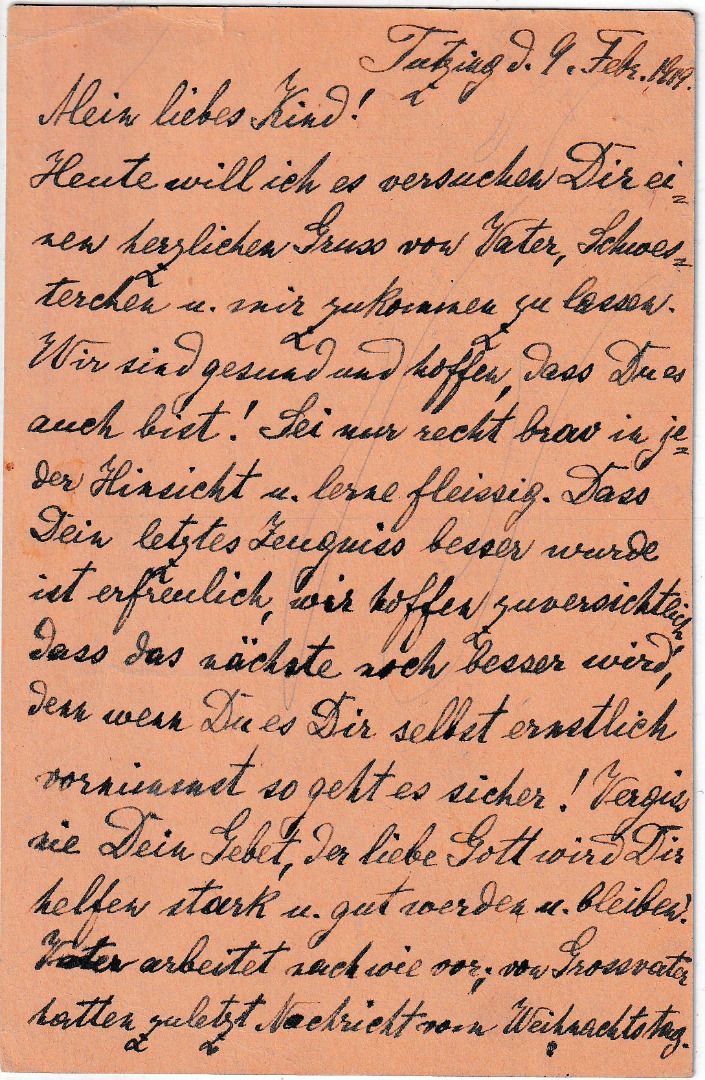 Tutzing d. 9. Febr. 1919.
Mein liebes Kind!
Heute will ich es versuchen Dir ei=
nen herzlichen Gruss von Vater, Schwes=
terchen u. mir zukommen zu lassen.
Wir sind gesund und hoffen, dass Du es
auch bist! Sei nur recht brav in je=
der Hinsicht u. lerne fleissig. Dass
Dein letztes Zeugniss besser wurde
ist erfreulich, wir hoffen zuversichtlich,
dass das nächste noch besser wird,
denn wenn Du es Dir selbst ernstlich
vornimmst so geht es sicher! Vergiss
nie Dein Gebet, der liebe Gott wird Dir
helfen stark u. gut werden u. bleiben.
Vater arbeitet nach wie vor; von Grossvater
hatten zuletzt Nachricht vom Weihnachtstag.